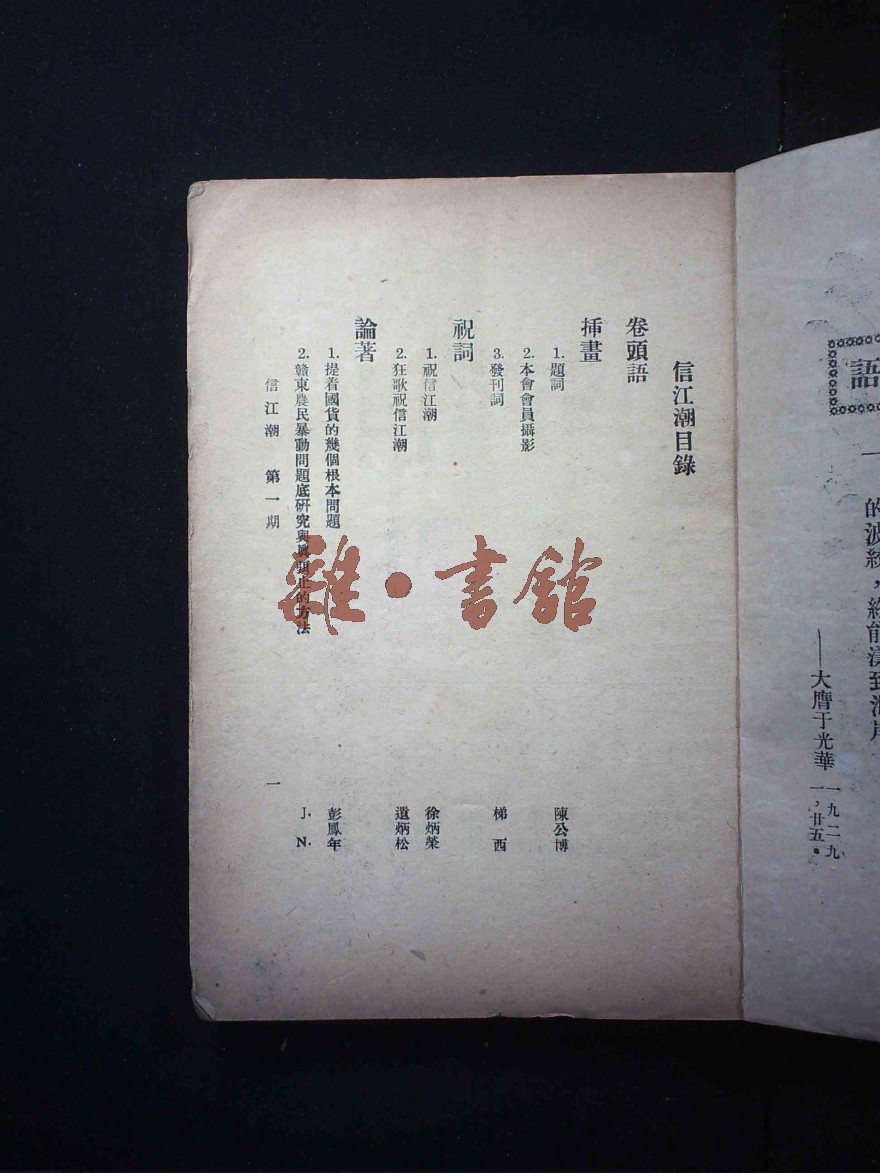 語
一
的波紋，纔能達到海岸
——大膺于光華
一九二九
一，廿五。
信江潮目錄
卷頭語
插畫
1. 題詞 陳公博
2. 本會會員攝影
3. 發刊詞 梯西
祝詞
1. 祝信江潮 徐炳榮
2. 狂歌祝信江潮 遺炳松
論著
1. 提着國貨的幾個根本問題 彭鳳年
2. 贛東農民暴動問題底研究與 的方法 J. N.
信江潮 第一期
一
雜·書館